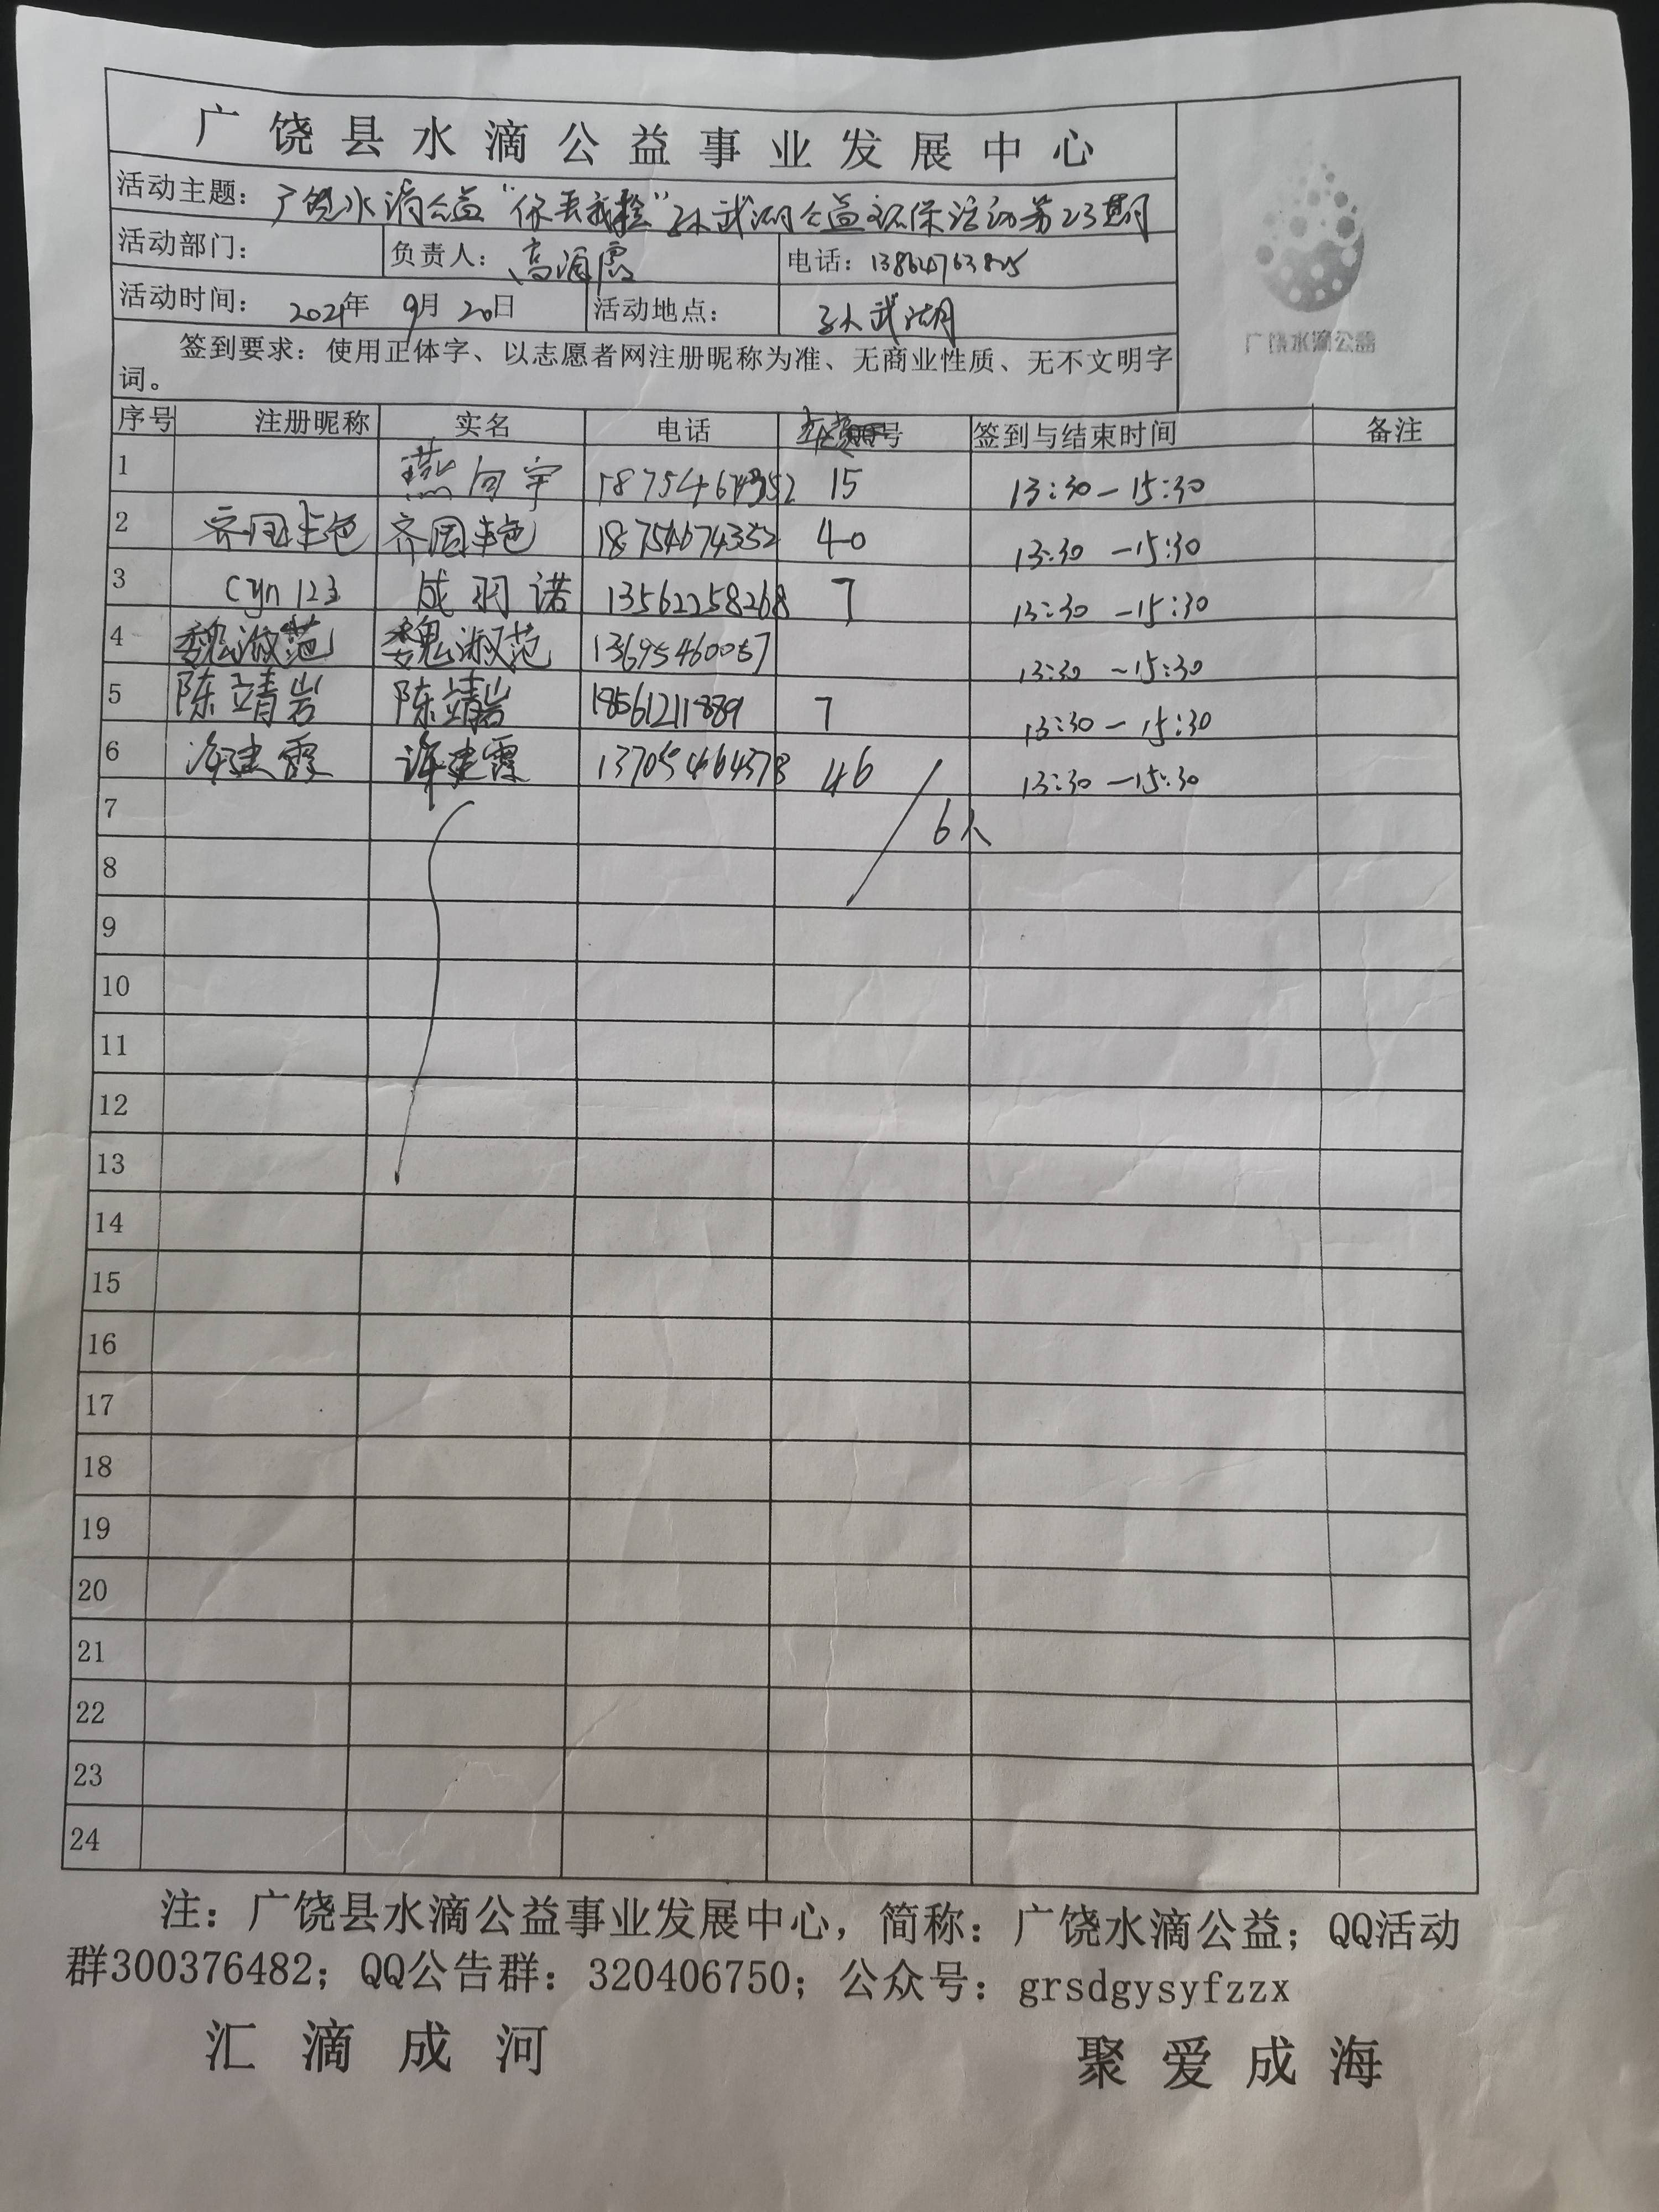 广饶县水滴公益事业发展中心
活动主题：广饶水滴公益"你丢我捡"孙武湖公益环保活动第23期
活动部门： 负责人：高 霞 电话：
活动时间：2021年9月20日 活动地点：孙武湖
广饶水滴公益
签到要求：使用正体字、以志愿者网注册昵称为准、无商业性质、无不文明字
词。
序号 注册昵称 实名 电话 号 签到与结束时间 备注
1 燕向宇 15 13:30-15:30
2 齐国丰色 齐国丰色 18754674352 40 13:30-15:30
3 cyn123 成羽诺 13562258268 7 13:30-15:30
4 魏淑范 魏淑范 13695460057 13:30-15:30
5 陈靖岩 陈靖岩 18561211889 7 13:30-15:30
6 许建霞 许建霞 13705464378 46 13:30-15:30
7 6人
8
9
10
11
12
13
14
15
16
17
18
19
20
21
22
23
24
注：广饶县水滴公益事业发展中心，简称：广饶水滴公益；QQ活动
群300376482；QQ公告群：320406750；公众号：grsdgysyfzzx
汇滴成河 聚爱成海